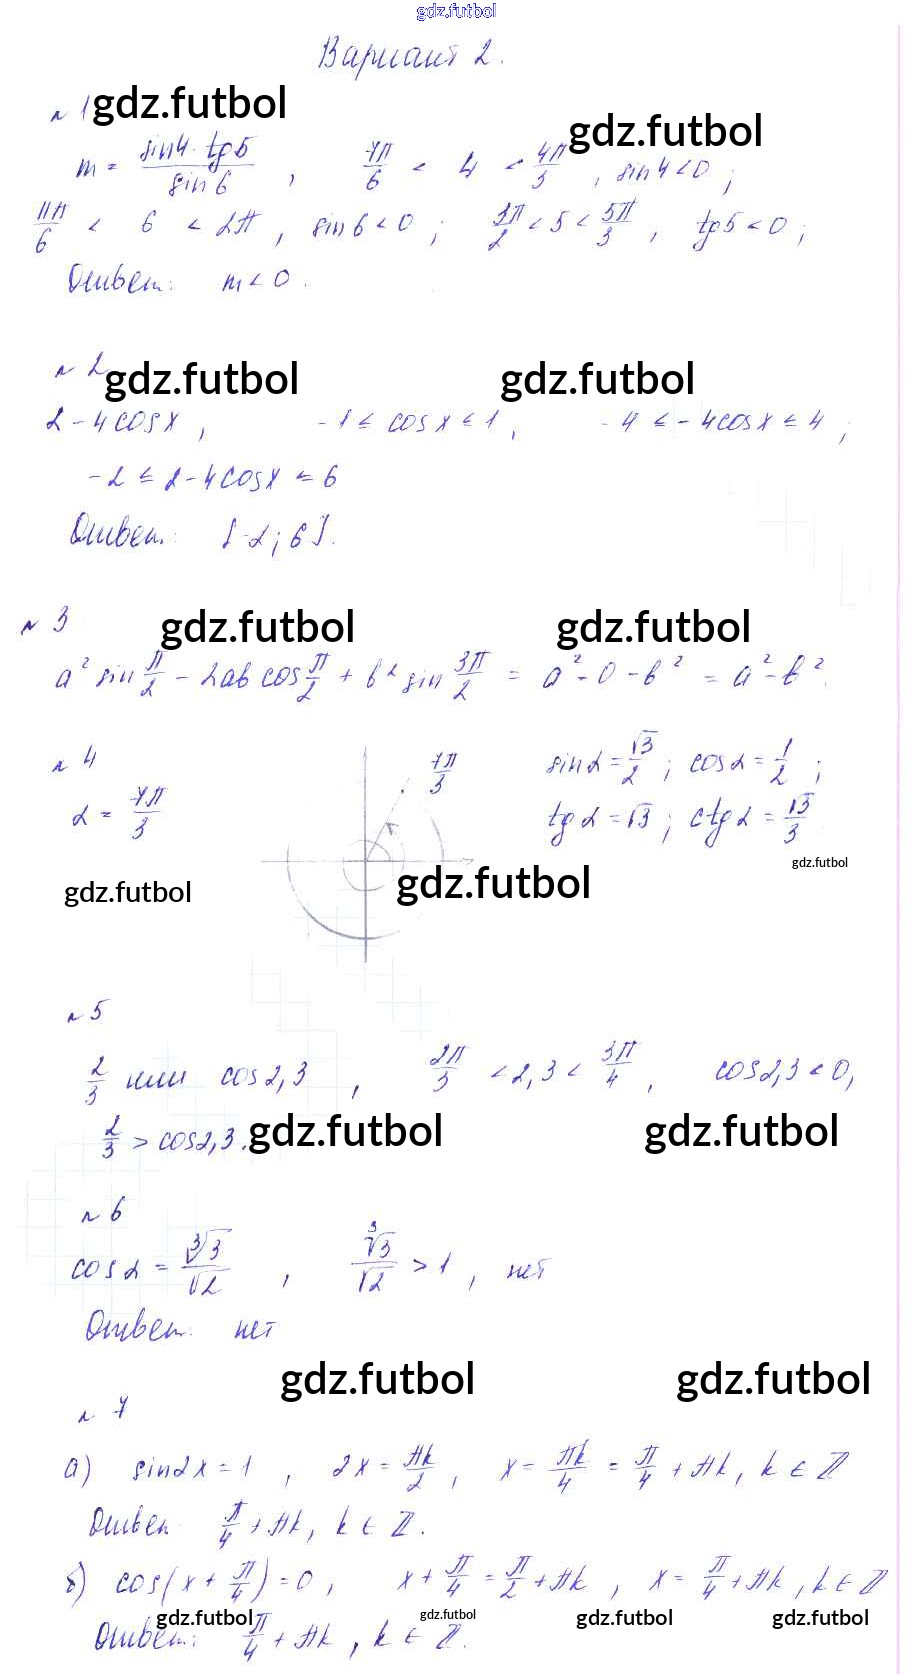 gdz.futbol
Вариант 2.
№ 1 gdz.futbol
gdz.futbol
m = sin4·tg5/sin6, 7π/6 < 4 < 4π/3, sin4<0;
11π/6 < 6 < 2π, sin6<0; 3π/2 < 5 < 5π/3, tg5<0;
Ответ: m<0.
№ 2 gdz.futbol gdz.futbol
2-4cosx, -1 ≤ cosx ≤ 1, -4 ≤ -4cosx ≤ 4;
-2 ≤ 2-4cosx ≤ 6
Ответ: [-2; 6].
№ 3 gdz.futbol gdz.futbol
a² sin π/2 - 2ab cos π/2 + b² sin 3π/2 = a² - 0 - b² = a² - b².
№ 4 7π/3 sinα = √3/2; cosα = 1/2;
α = 7π/3 tgα = √3; ctgα = √3/3
gdz.futbol
gdz.futbol gdz.futbol
№ 5
2/3 или cos2,3, 2π/3 < 2,3 < 3π/4, cos2,3<0,
2/3 > cos2,3. gdz.futbol gdz.futbol
№ 6
cosα = ∛3/√2, ∛3/√2 > 1, нет
Ответ: нет
gdz.futbol gdz.futbol
№ 7
а) sin2x = 1, 2x = πk/2, x = πk/4 = π/4 + πk, k ∈ Z
Ответ π/4 + πk, k ∈ Z.
б) cos(x + π/4) = 0, x + π/4 = π/2 + πk, x = π/4 + πk, k ∈ Z
gdz.futbol gdz.futbol gdz.futbol gdz.futbol
Ответ: π/4 + πk, k ∈ Z.